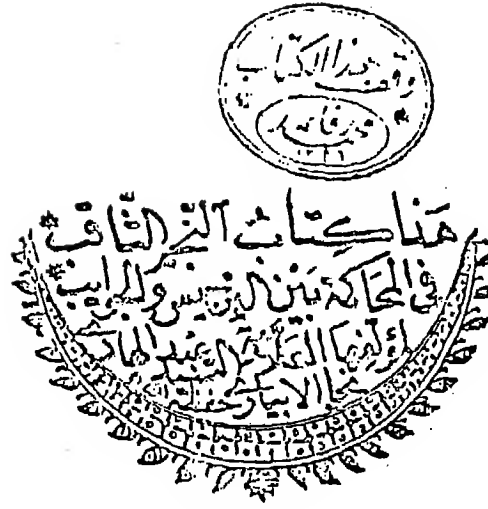 وقف هذا الكتاب
هَذا كِتابُ النجم الثاقب
في المحاكمة بين البرجيس والجوائب
لمؤلفها العلامة السيد عبد الهادي
نجا الابياري